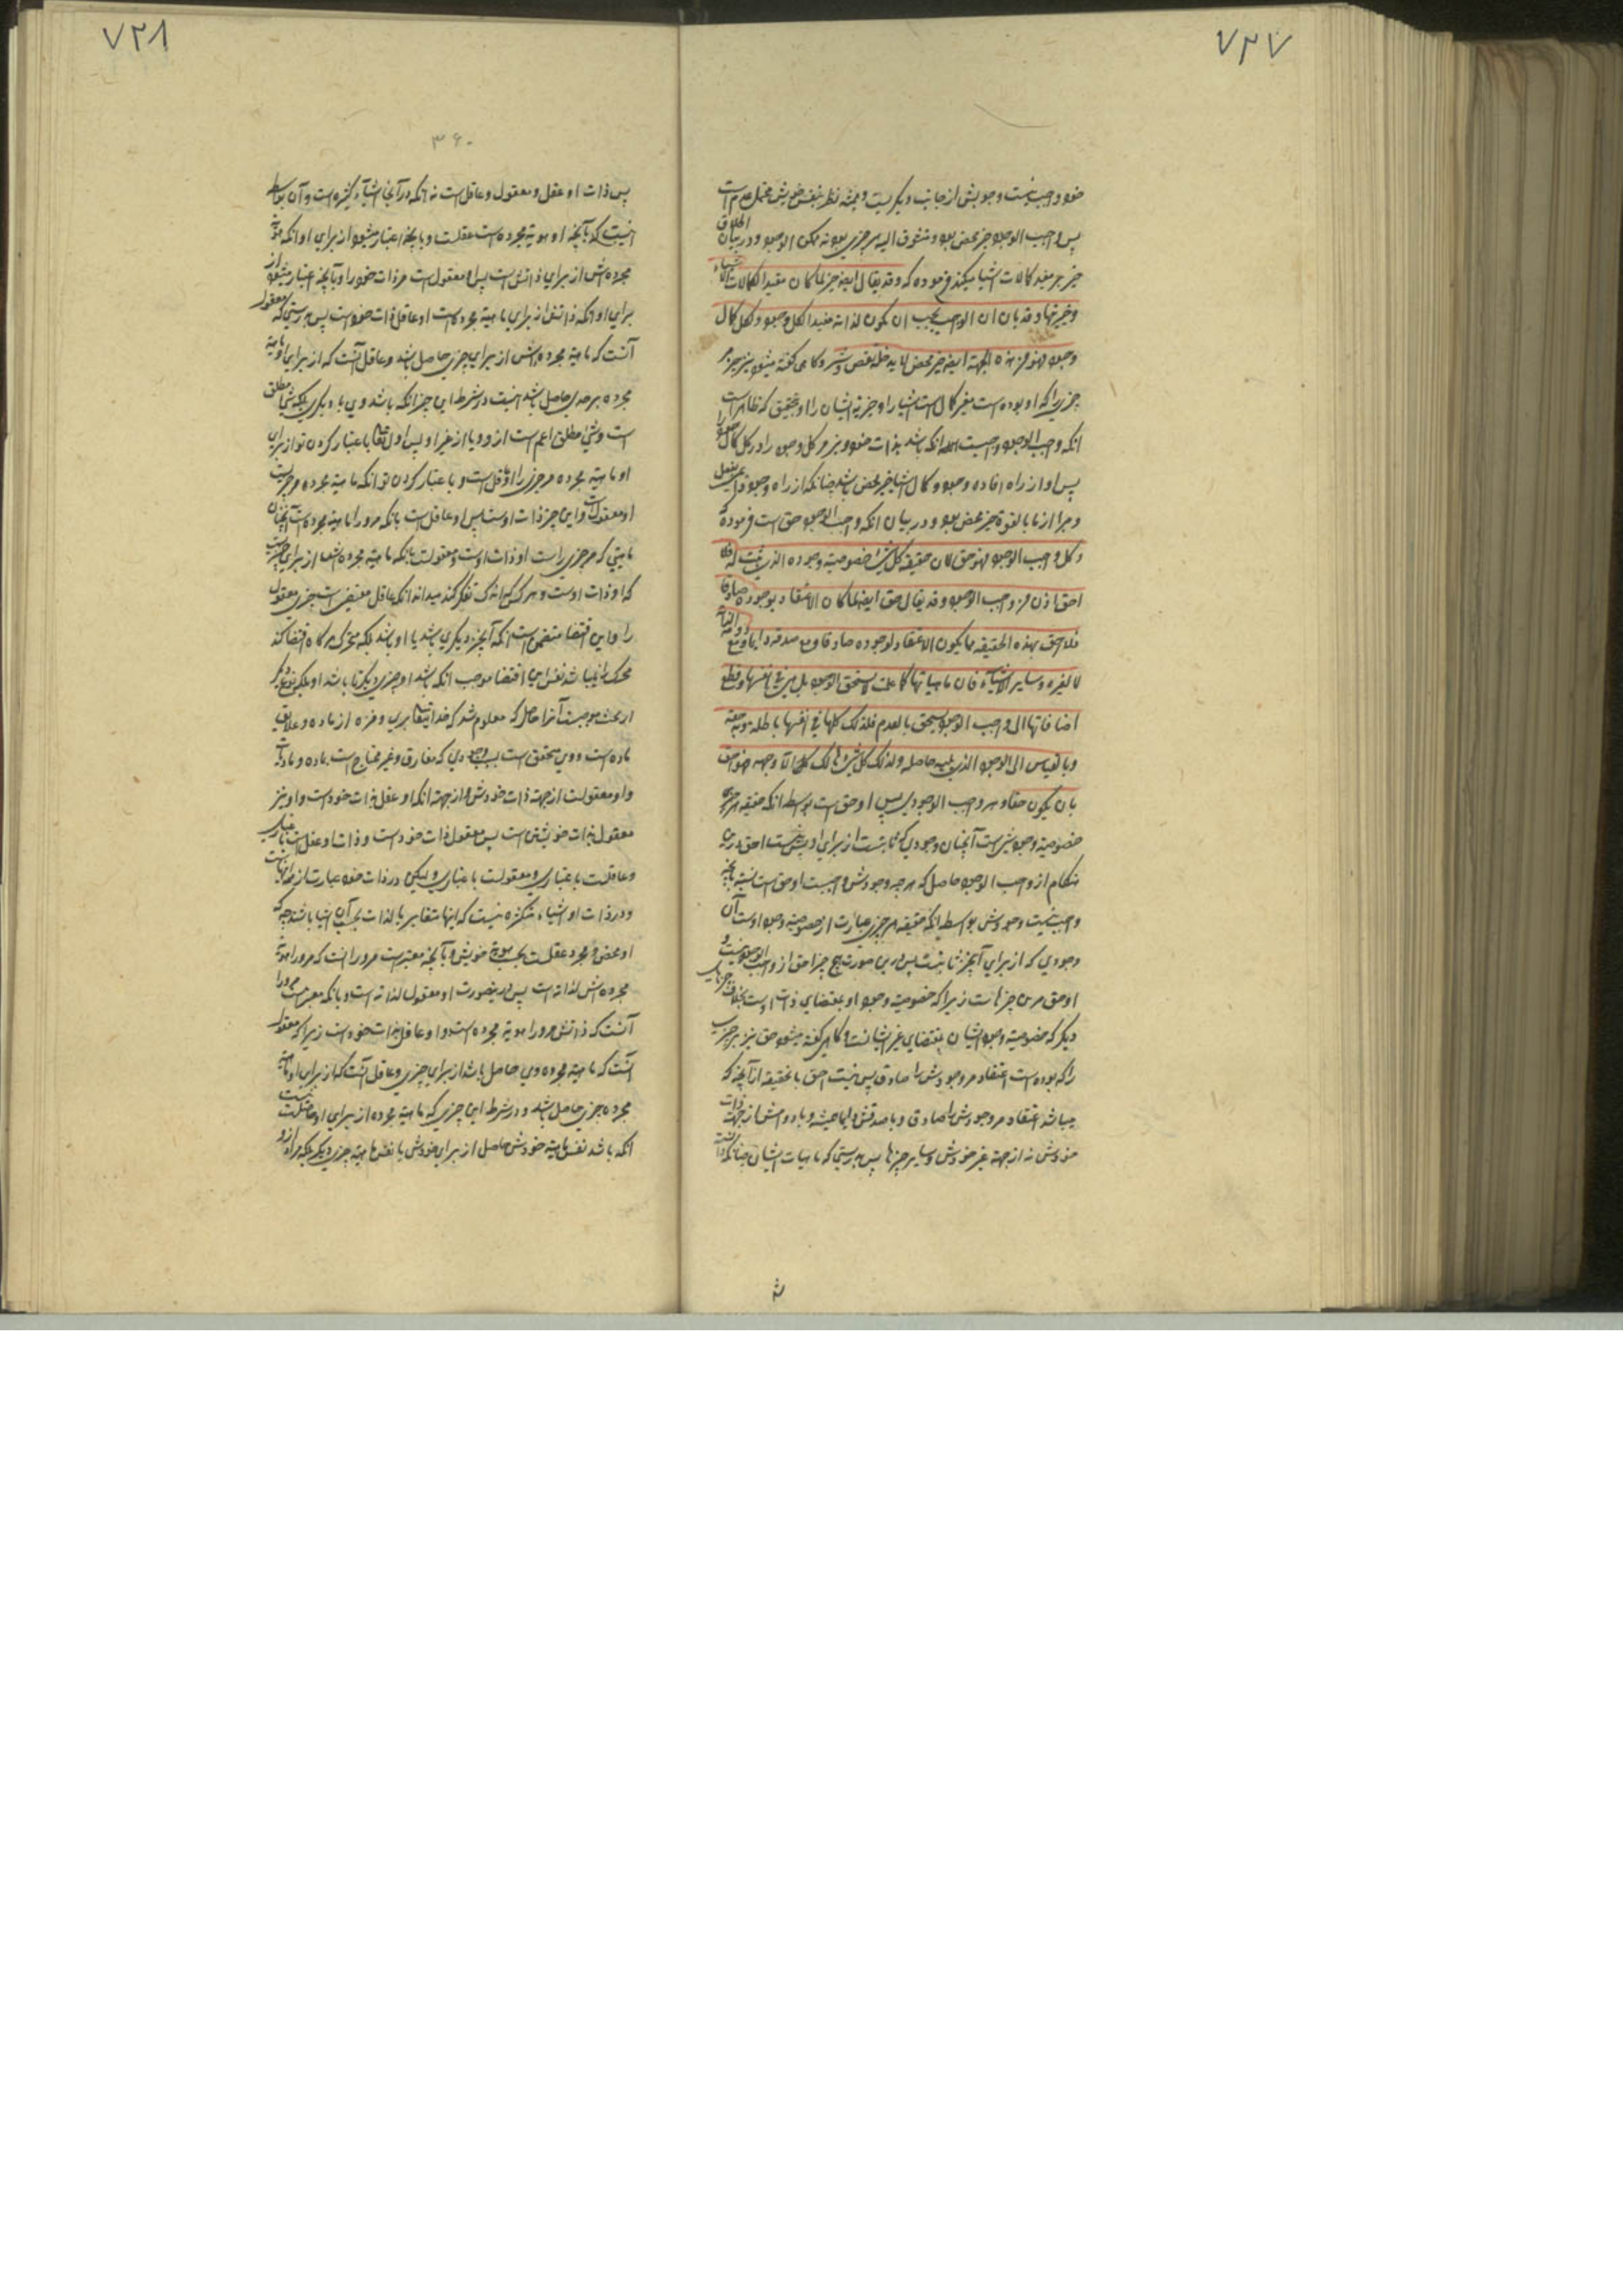 ۷۳۷
خود واجب نیست وجوبش از جانب دیگریست و همیشه نظر بنفس خویش محتمل عدم است
پس واجب الوجود خیر محض بود و متشوق الیه هر چیزی بود نه ممکن الوجود و در بیان اطلاق
خیر بر مفید کمالات اشیا میکند فرموده که و قد یقال ایضا خیر لما کان مفیدا لکمالات الاشیاء
و خیریتها و قد بان ان الواجب یجب ان یکون لذاته مفیدا لکل وجود و لکل کمال
وجود فهو من هذه الجهة ایضا خیر محض لا یدخله نقص و شر و گاهی گفته میشود نیز خیر مر
چیزی را که او بوده است مفید کمال است اشیا را و خیریة ایشان را و بتحقیق که ظاهر است
انکه واجب الوجود واجبست انکه باشد بذات خود مفید مر کل وجود را و کل کمال وجود را
پس او از راه افاده وجود و کمال اشیا خیر محض باشد چنانکه از راه وجود بالفعل
و مبرا از ما بالقوة خیر محض بود و در بیان انکه واجب الوجود حق است فرموده که
و کل واجب الوجود فهو حق لان حقیقة کل شئ خصوصیة وجوده الذی یثبت له فلا
احق اذن من واجب الوجود و قد یقال حق ایضا لما کان الاعتقاد بوجوده صادقا
فلا احق بهذه الحقیقة مما یکون الاعتقاد لوجوده صادقا و مع صدقه دایما و مع دوامه لذاته
لا لغیره و سایر الاشیاء فان ماهیاتها کما علمت لا یستحق الوجود بل هی فی انفسها و قطع
اضافاتها الی واجب الوجود یستحق بالعدم فلذلک کلها فی انفسها باطلة و به حقة
و بالقیاس الی الوجه الذی یلیه حاصلة و لذلک کل شئ هالک الا وجهه فهو احق
بان یکون حقا و هر واجب الوجودی پس او حق است بواسطه انکه حقیقة هر چیزی
خصوصیة وجودیست آنچنان وجودی که ثابتست از برای او پس نیست احق درین
هنگام از واجب الوجود حاصل که هر چه وجودش واجبست او حق است نسبة بآنچه
واجب نیست وجودش بواسطه انکه حقیقة هر چیزی عبارت از خصوصیة وجود اوست آن
وجودی که از برای آن چیز ثابتست پس درین صورت هیچ چیز احق از واجب الوجود نیست و
او حق مرین چیزهاست زیرا که خصوصیة وجود او بمقتضای ذات اوست بخلاف چیزهای
دیگر که خصوصیة وجود ایشان بمقتضای غیر ایشانست و گاهی گفته میشود حق نیز مر چیزی
را که بوده است اعتقاد مر وجودش را صادق پس نیست احق باینحقیقة از آنچه که
میباشد اعتقاد مر وجودش را صادق و با صدقش دایما همیشه و با دوامش از جهة ذات
خودش نه از جهة غیر خودش و سایر چیزها پس بدرستی که ماهیات ایشان چنانکه دانسته
۷۳۸
۳۶۰
پس ذات او عقل و معقول و عاقل است نه انکه در آنجا اشیاء کثیره است و آن بواسطه
اینست که بآنچه او هویة مجرده است عقلست و بآنچه اعتبار میشود از برای او انکه هویة
مجرده‌اش از برای ذاتش است پس او معقول است مر ذات خود را و بآنچه اعتبار میشود از
برای او انکه ذاتش از برای ماهیة مجرده است او عاقل ذات خود است پس بدرستی که معقول
آنست که ماهیة مجرده‌اش از برای چیزی حاصل باشد و عاقل آنست که از برای او ماهیة
مجرده بر چیزی حاصل باشد نیست در شرط این چیز انکه باشد وی یا دیگری بلکه شئ مطلق
است و شئ مطلق اعم است از وی یا از غیر او پس اول تعالی باعتبار کردن تو از برای
او ماهیة مجرده مر چیزی را او عاقل است و باعتبار کردن تو انکه ماهیة مجرده مر چیزیست
او معقول است و این چیز ذات اوست پس او عاقل است بانکه مر او را ماهیة مجرده است آنچنان
ماهیتی که مر چیزی راست او ذات اوست و معقولست بانکه ماهیة مجرده‌اش از برای چیزیست
که او ذات اوست و هر کس که اندک تفکر کند میداند انکه عاقل مقتضی است چیزی معقول
را و این اقتضا متضمن نیست انکه آن چیز دیگری باشد یا او باشد بلکه متحرک هر گاه اقتضا کند
محرک را نمیباشد نفس این اقتضا موجب انکه باشد او چیزی دیگر یا باشد او بلکه نوع دیگر
از بحث موجبست آنرا حاصل که معلوم شد که خدایتعالی بری و منزه از ماده و علایق
ماده است و وی متحقق است بوجودی که مفارق و غیر محتاج است بماده و مادیات
و او معقولست از جهة ذات خودش و از جهة انکه او عقل بذات خود است و او نیز
معقول بذات خویشتن است پس معقول ذات خود است و ذات او عقل است باعتباری
و عاقلست باعتباری و معقولست باعتباری و لیکن در ذات خود عبارت از همه اینهاست
و در ذات او اشیاء متکثره نیست که اینها متغایر بالذات بحسب آن اشیا باشند چه که
او محض و مجرد عقلست بحسب هویة خویش و بآنچه معتبر است مر او را انست که مر او را هویة
مجرده‌اش لذاته است پس درینصورت او معقول لذاته است و بانکه معتبر است مر او را
آنست که ذاتش مر او را هویة مجرده است و او عاقل بذات خود است زیرا که معقول
آنست که ماهیة مجرده وی حاصل باشد از برای چیزی و عاقل آنست که از برای او ماهیة
مجرده چیزی حاصل باشد و در شرط این چیزی که ماهیة مجرده از برای او حاصلست نیست
انکه باشد نفس ماهیة خودش حاصل از برای خودش یا نفس ماهیة چیزی دیگر بلکه مراد ازو